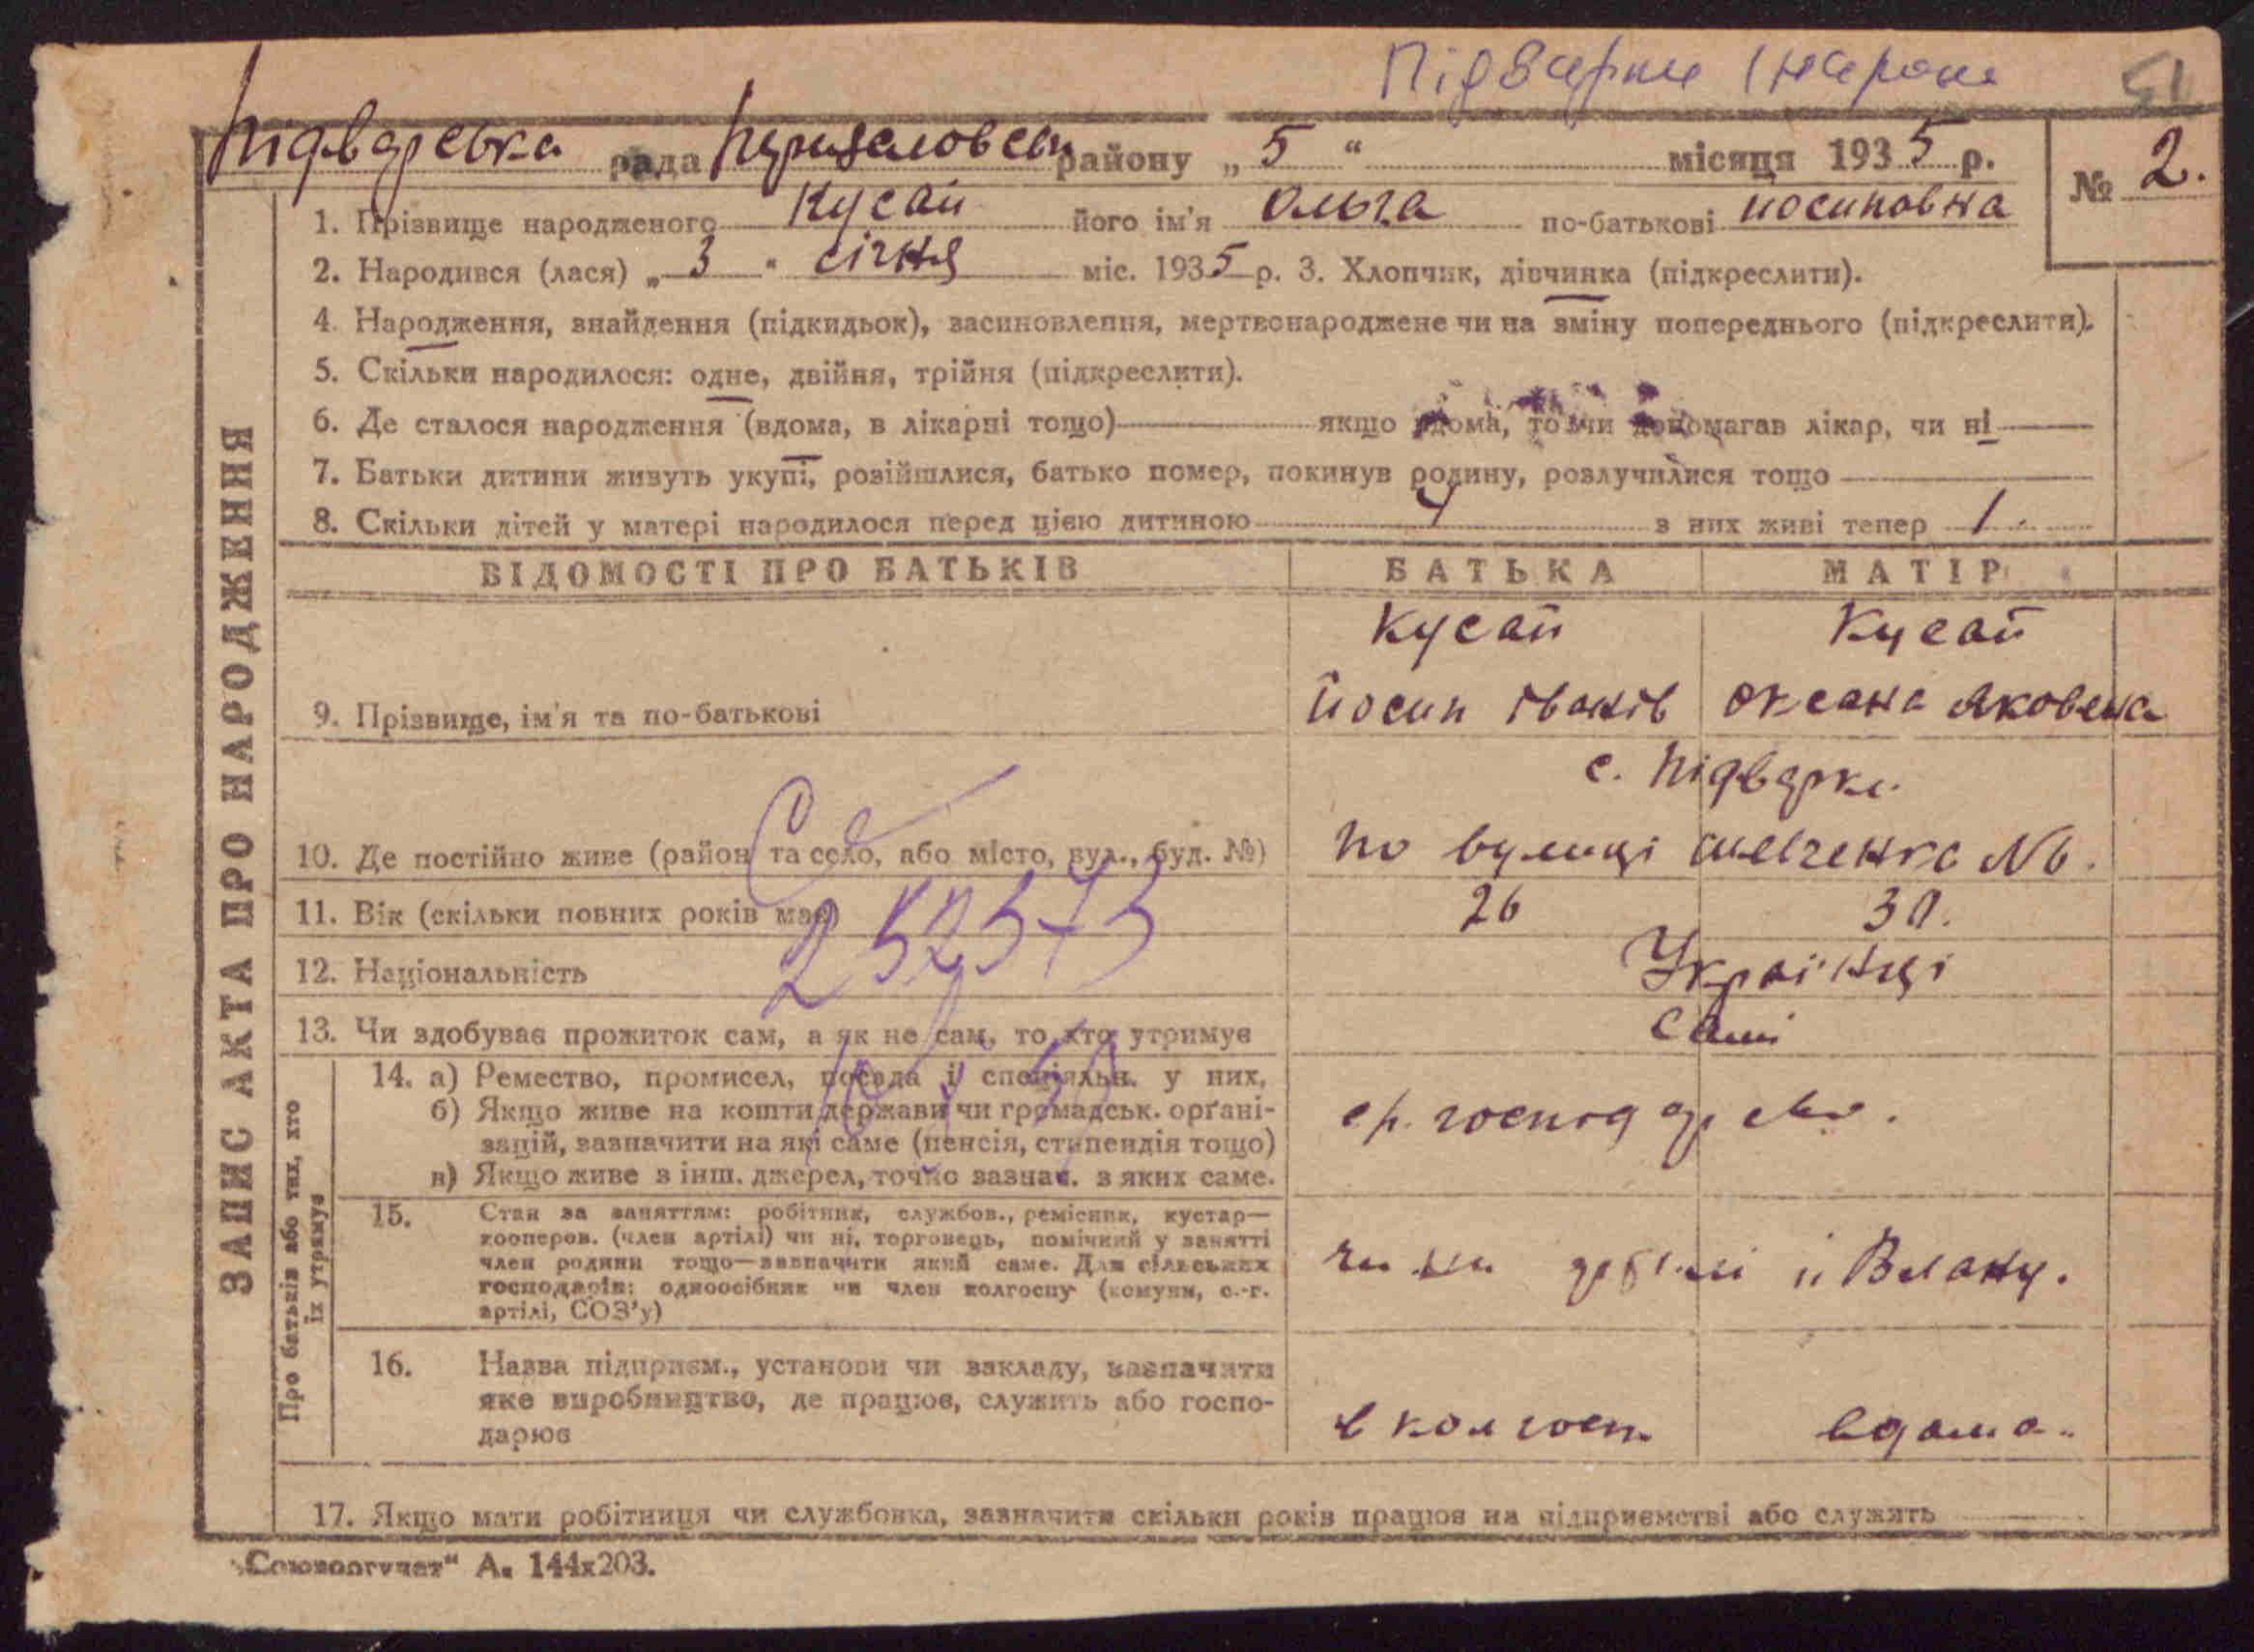 Підварки
51
Підварська рада району „ 5 “ місяця 1935 р.
№ 2.
1. Прізвище народженого Кусай його ім'я Ольга по-батькові Йосиповна
2. Народився (лася) „ 3 “ січня міс. 1935 р. 3. Хлопчик, дівчинка (підкреслити).
4. Народження, знайдення (підкидьок), засиновлення, мертвонароджене чи на зміну попереднього (підкреслити).
5. Скільки народилося: одне, двійня, трійня (підкреслити).
6. Де сталося народження (вдома, в лікарні тощо) якщо вдома, то чи допомагав лікар, чи ні
7. Батьки дитини живуть укупі, розійшлися, батько помер, покинув родину, розлучилися тощо
8. Скільки дітей у матері народилося перед цією дитиною 4 з них живі тепер 1.
ВІДОМОСТІ ПРО БАТЬКІВ БАТЬКА МАТІР
Кусай Кусай
9. Прізвище, ім'я та по-батькові Йосип Іванів Оксана Яковена
с. Підварки
10. Де постійно живе (район та село, або місто, вул., буд. №) по вулиці Шевченка №
11. Вік (скільки повних років має) 26 30.
252573
12. Національність Українці
13. Чи здобуває прожиток сам, а як не сам, то хто утримує Самі
14. а) Ремество, промисел, посада і спеціяльн. у них,
б) Якщо живе на кошти держави чи громадськ. орґані-
зацій, зазначити на які саме (пенсія, стипендія тощо)
в) Якщо живе з інш. джерел, точно зазнач. з яких саме.
15. Стан за заняттям: робітник, службов., ремісник, кустар—
кооперов. (член артілі) чи ні, торговець, помічний у занятті
член родини тощо—зазначити який саме. Для сільських
господарів: одноосібник чи член колгоспу (комуни, с.-г.
артілі, СОЗ'у)
16. Назва підприєм., установи чи закладу, зазначити
яке виробництво, де працює, служить або госпо-
дарює
в колгосп вдома.
17. Якщо мати робітниця чи службовка, зазначити скільки років працює на підприємстві або служить
ЗАПИС АКТА ПРО НАРОДЖЕННЯ
Про батьків або тих, хто
їх утримує
„Союзоргучет“ А. 144х203.